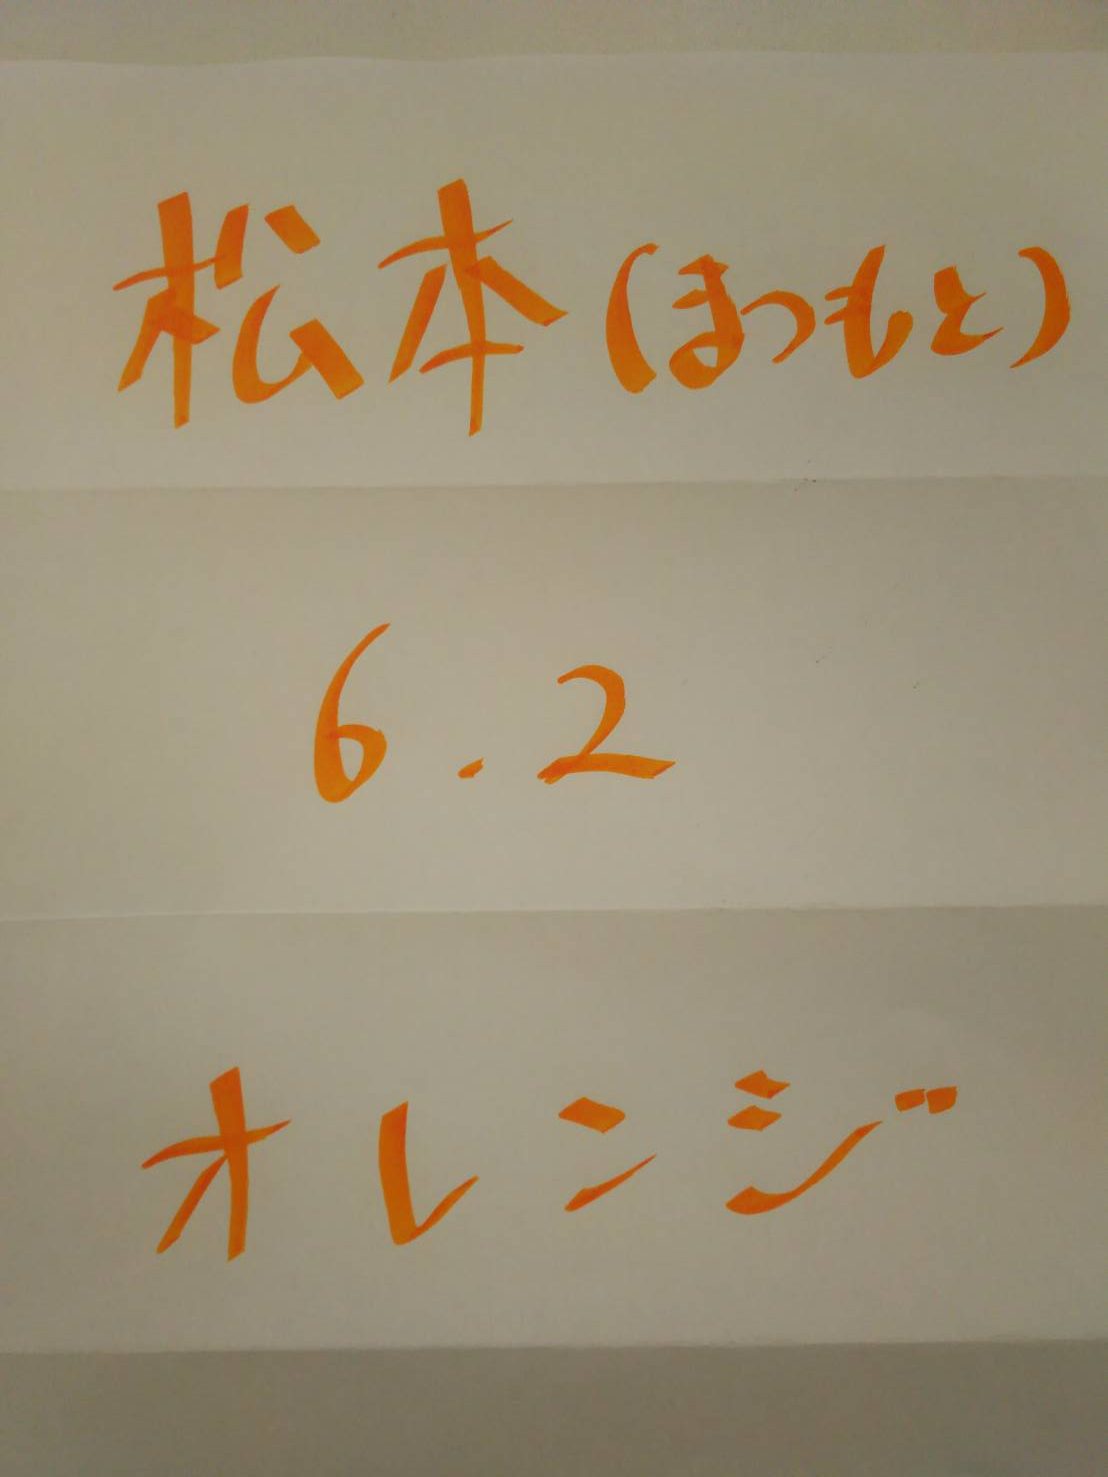 松本(まつもと)
6.2
オレンジ